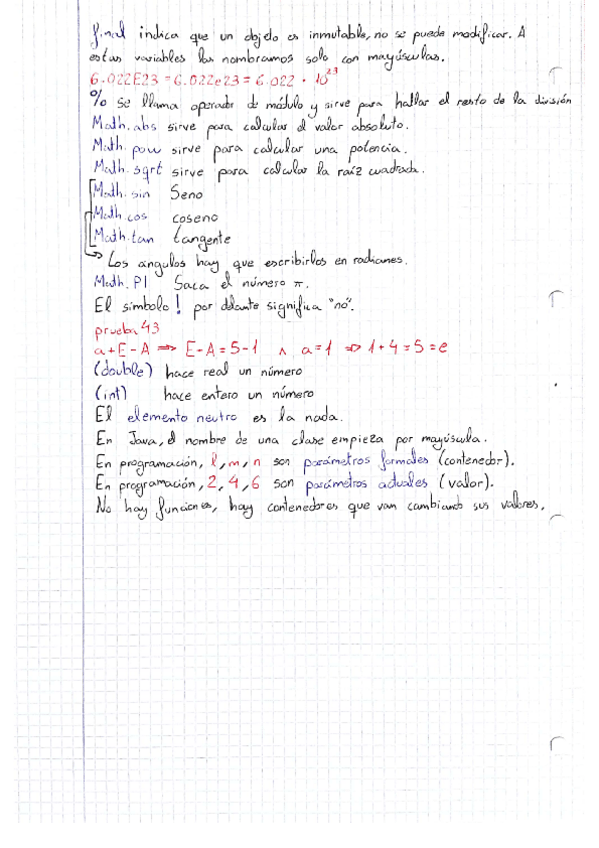 final indica que un objeto es inmutable, no se puede modificar. A
estas variables las nombramos solo con mayúsculas.
6.022E23 = 6.022e23 = 6.022 · 10²³
% Se llama operador de módulo y sirve para hallar el resto de la división
Math.abs sirve para calcular el valor absoluto.
Math.pow sirve para calcular una potencia.
Math.sqrt sirve para calcular la raíz cuadrada.
Math.sin Seno
Math.cos coseno
Math.tan tangente
↳ Los ángulos hay que escribirlos en radianes.
Math.PI Saca el número π.
El símbolo ! por delante significa "no".
prueba 43
a+E-A ⇒ E-A=5-1 ∧ a=1 ⇒ 1+4=5=e
(double) hace real un número
(int) hace entero un número
El elemento neutro es la nada.
En Java, el nombre de una clase empieza por mayúscula.
En programación, l, m, n son parámetros formales (contenedor).
En programación, 2, 4, 6 son parámetros actuales (valor).
No hay funciones, hay contenedores que van cambiando sus valores.